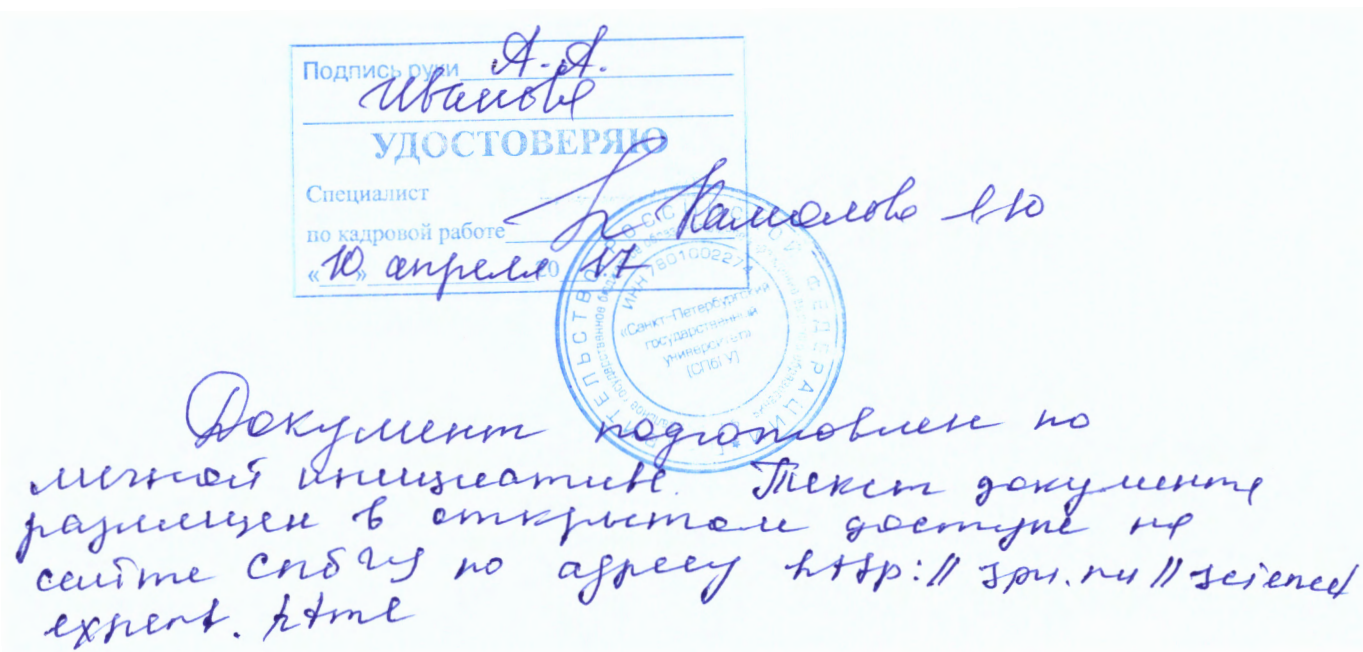 Подпись руки А.А.
Иванова
УДОСТОВЕРЯЮ
Специалист
по кадровой работе Камолова
«10» апреля 2017
ИНН 7801002274
«Санкт-Петербургский
государственный
университет»
(СПбГУ)
Документ подготовлен по
личной инициативе. Текст документа
размещен в открытом доступе на
сайте СПбГУ по адресу http://spu.ru//science/
expert.html